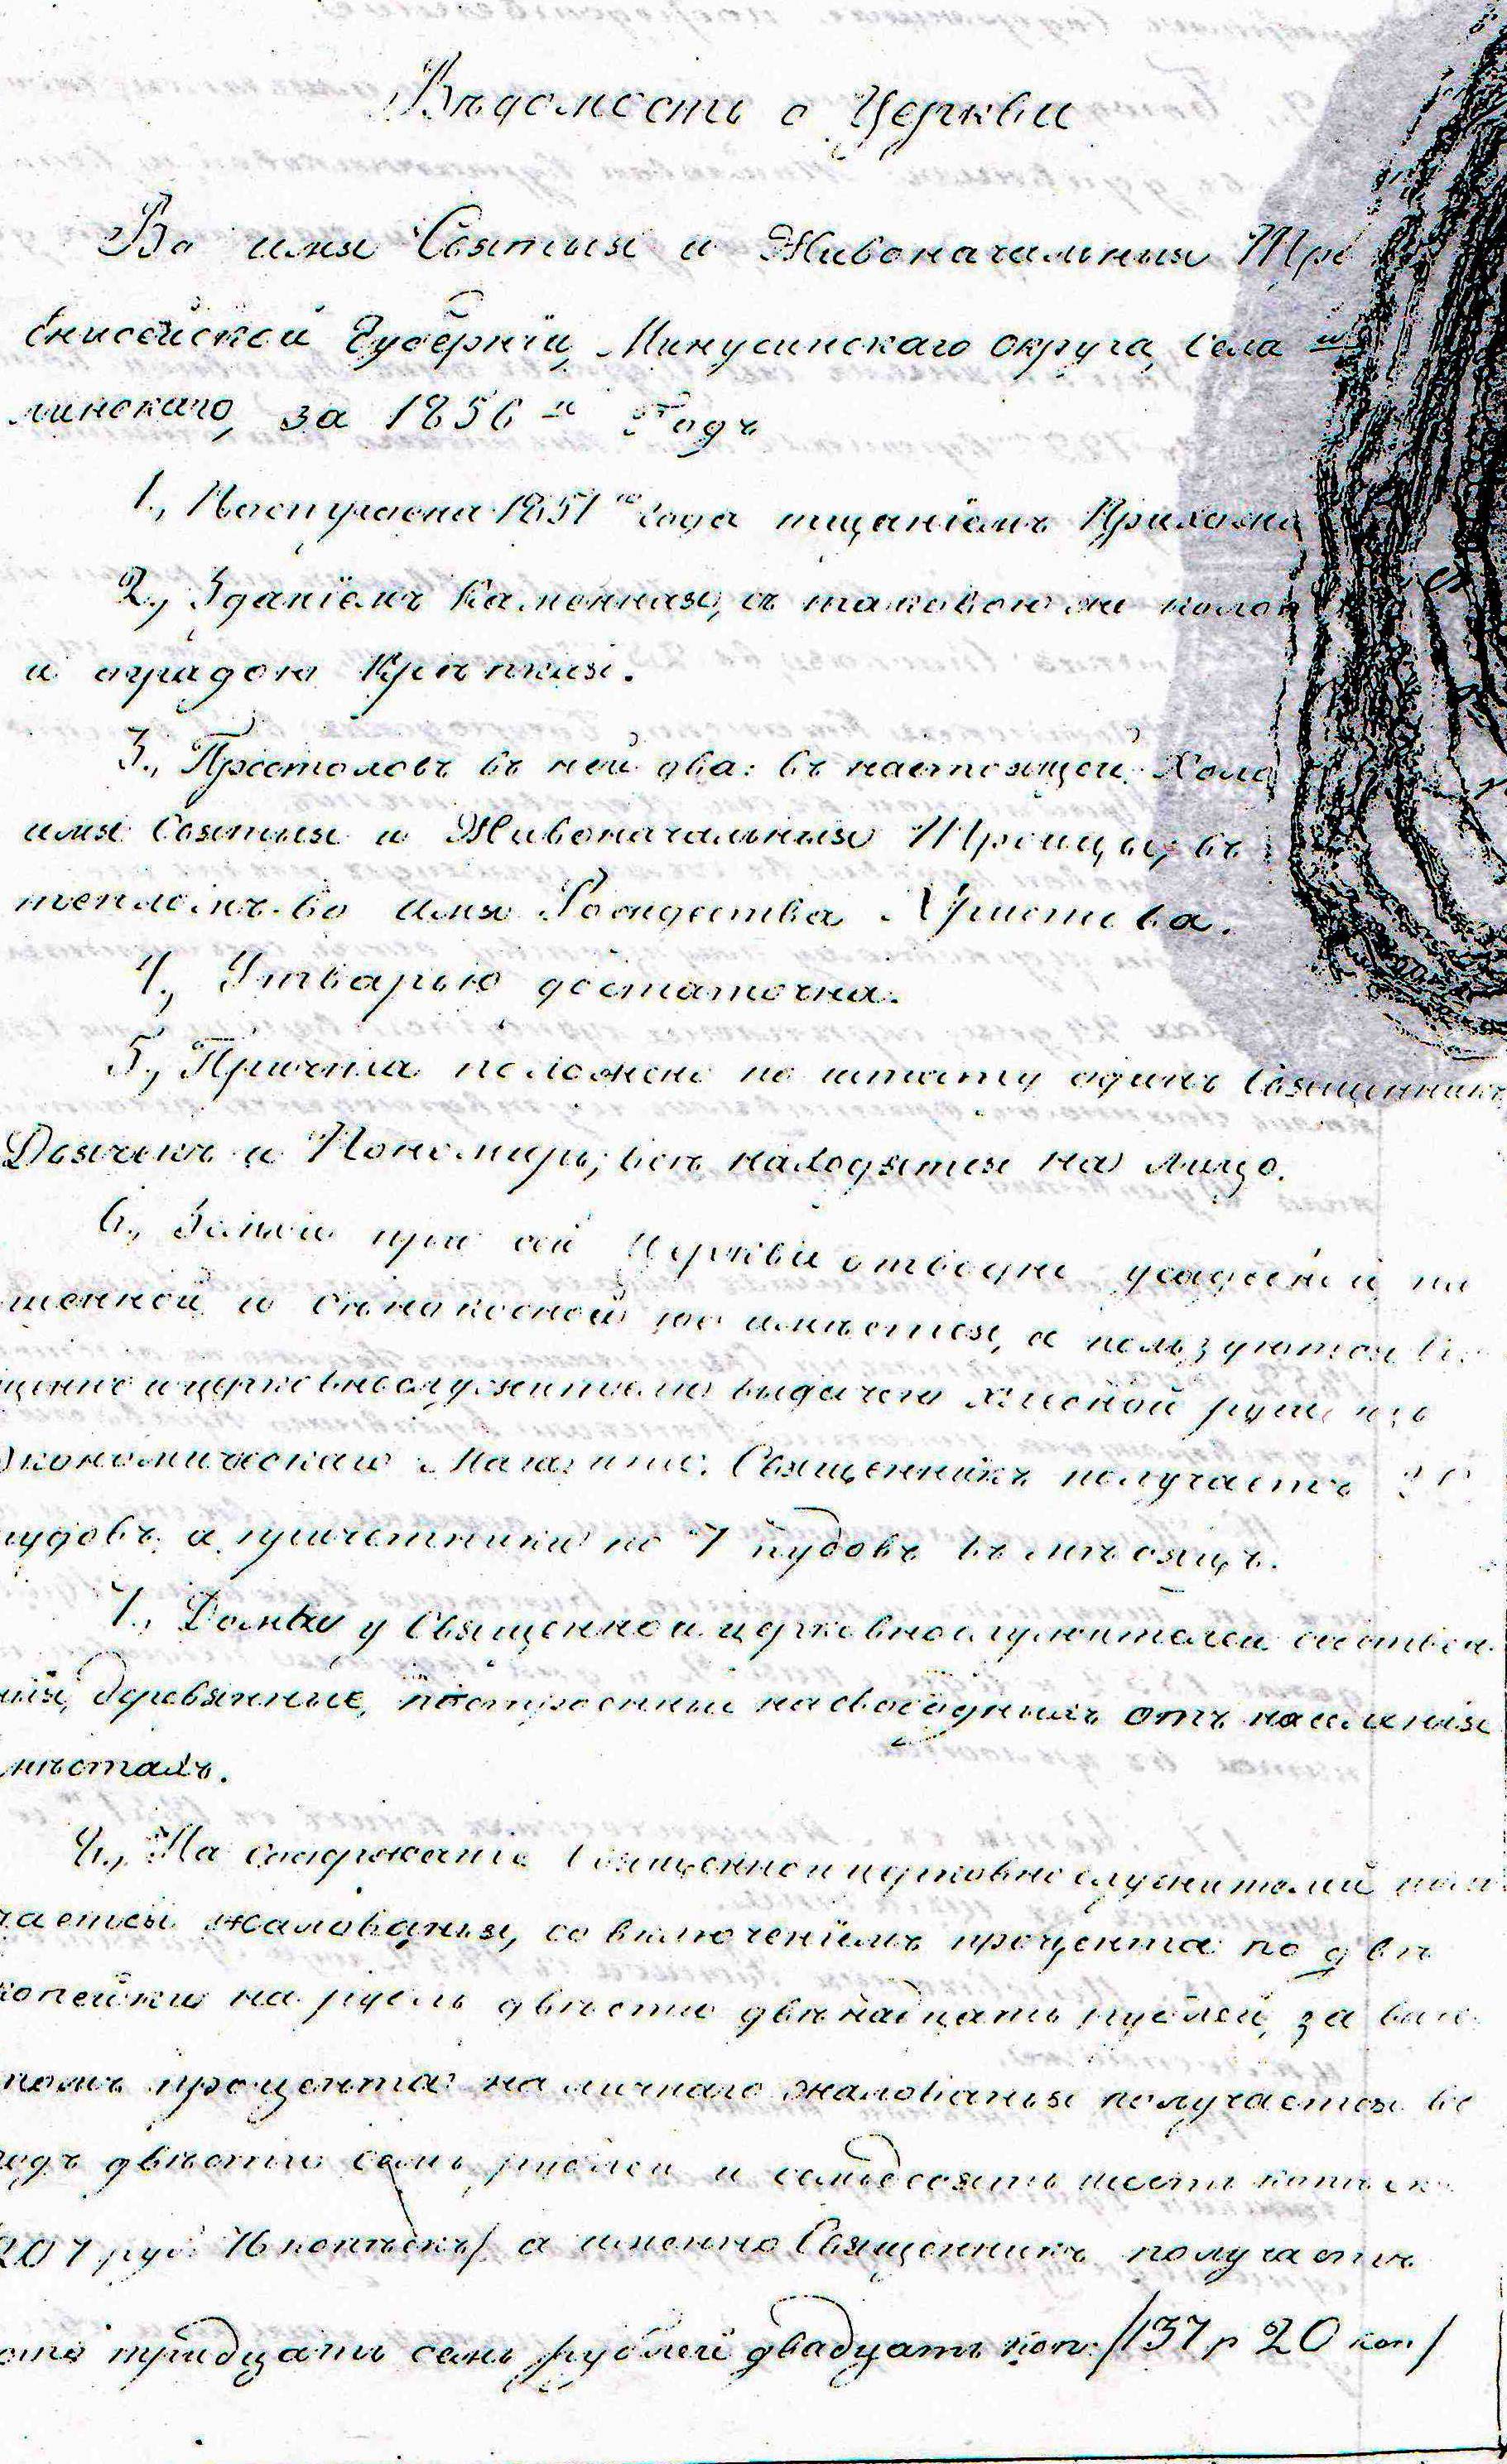 Вѣдомость о Церкви
Во имя Святыя и Живоначальныя Тро
Енисейской Губерніи, Минусинскаго округа, села
минскаго, за 1856-й Годъ
1., Построена 1851го года тщаніемъ Прихожа
2., Зданіемъ Каменная, съ таковою же колок
и оградою крѣпкая.
3., Престоловъ въ ней два: въ настоящей Холо
имя Святыя и Живоначальныя Троицы, въ
тепломъ во имя Рождества Христова.
4., Утварью достаточна.
5., Причта положено по штату одинъ Священникъ,
Дьячекъ и Пономарь; всѣ находятся на лицо.
6., Земли при сей Церкви отводне усадебной па
шенной и сѣнокосной не имѣется, а пользуются Св
щенно и церковнослужители выдачею хлѣбной руги изъ
Экономическаго Магазина: Священникъ получаетъ
пудовъ, а причетники по 7 пудовъ въ мѣсяцъ.
7., Домы у Священно и церковнослужителей собствен
ныя, деревянные, построенныи на свободныхъ отъ населенія
мѣстахъ.
8., На содержаніе Священно и церковнослужителей полу
чается жалованья, со включеніемъ процента по двѣ
копейки на рубль двѣсти двѣнадцать рублей, за выче
томъ процента наличнаго жалованья получается въ
годъ двѣсти семь рублей и семьдесятъ шесть копѣекъ
/207 руб 76 копѣекъ/ а именно Священникъ получаетъ
сто тридцать семь рублей двадцать коп: /137 р 20 коп/